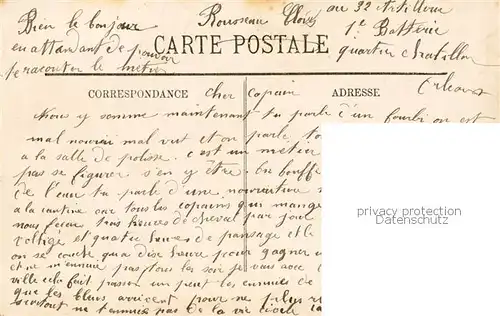 Bien le bonjour
en attendant de pouvoir
te raconter le métier
Rousseau
au 32 Artillerie
1e Batterie
quartier Chatillon
Orleans
CARTE POSTALE
CORRESPONDANCE
ADRESSE
Cher Copain
Nous y somme maintenant tu parle d'un fourbi on est
mal nourri mal vut et on parle
a la salle de polisse. c'est un métier
pas se figurer s'en y être. On bouffe
de l'eau tu parle d'une nourriture
a la cantine car tous les copains qui mange
nous trois heures de cheval par jour
voltige et quatre heures de pansage et le
on se couche qu'a dix heure pour gagner
et ne m'ennuie pas tous les soir je vais avec
ville cela fait passer un peut les ennuies de
que les bleus arrivent pour ne plus
surtout ne t'ennuie pas de la vie civile
privacy protection
Datenschutz